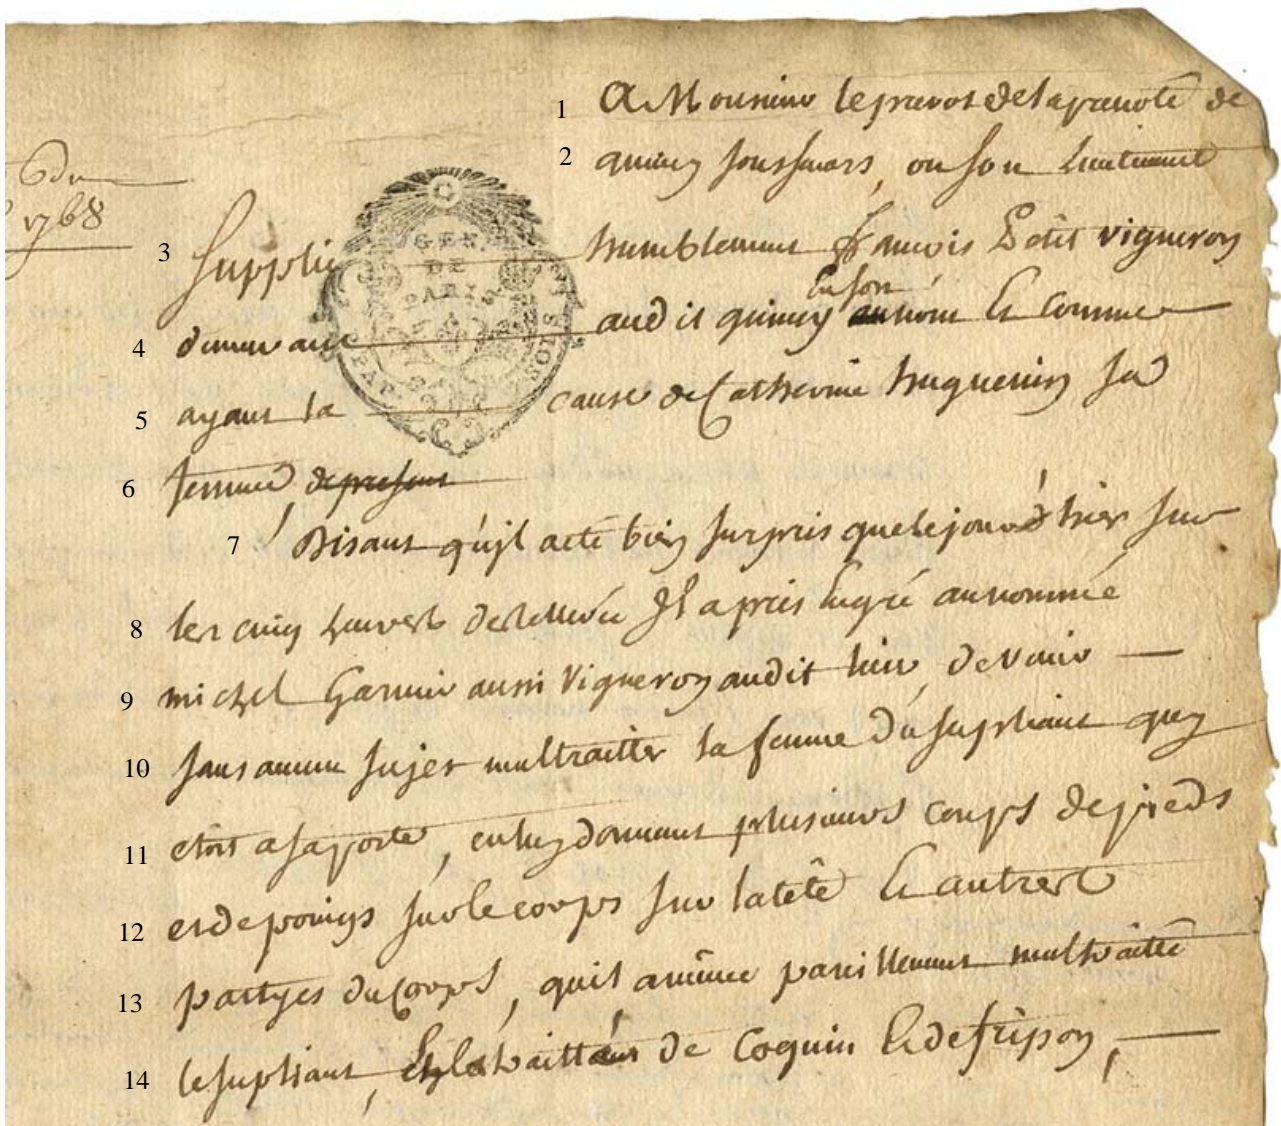 Du
1768
1 A Monsieur le prevot de la prevoté de
2 quincy soussenars, ou son Lieutenant
GEN. DE PARIS
3 Supplie humblement francois Petit vigneron
4 demeurant audit quincy en son nom Et comme
5 ayant la cause de Catherine huguenin sa
6 femme, de present
7 Disant qu'il a eté bien surpris que le jour d'hier sur
8 les cinq heures de relevée Il a pris Le gré au nommé
9 michel Garnier aussi Vigneron audit lieu, de venir
10 sans aucun sujet maltraitter la femme du supliant quy
11 etoit a sa porte, en luy donnant plusieurs coups de pieds
12 et de poings sur le corps sur la tête Et autres
13 partyes du Corps, quil a même pareillement maltraitté
14 le supliant, En le traittant de Coquin Et de fripon,